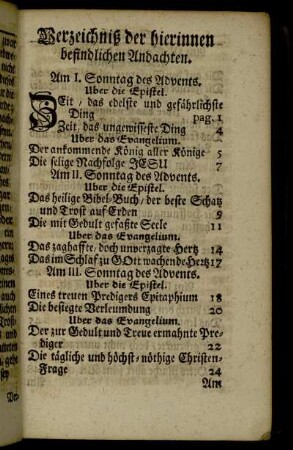 Verzeichniß der hierinnen
befindlichen Andachten.
Am I. Sonntag des Advents.
Uber die Epistel.
Zeit / das edelste und gefährlichste
Ding pag. 1
Zeit, das ungewisseste Ding 4
Uber das Evangelium.
Der ankommende König aller Könige 5
Die selige Nachfolge JESU 7
Am II. Sonntag des Advents.
Uber die Epistel.
Das heilige Bibel-Buch / der beste Schatz
und Trost auf Erden 9
Die mit Gedult gefaßte Seele 11
Uber das Evangelium.
Das zaghaffte / doch unverzagte Hertz 14
Das im Schlaf zu GOtt wachende Hertz 17
Am III. Sonntag des Advents.
Uber die Epistel.
Eines treuen Predigers Epitaphium 18
Die besiegte Verleumdung 20
Uber das Evangelium.
Der zur Gedult und Treue ermahnte Pre-
diger 22
Die tägliche und höchst-nöthige Christen-
Frage 24
Am